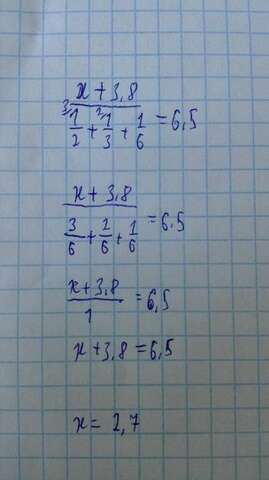 x + 3,8
3 1/2 + 2 1/3 + 1/6 = 6,5
x + 3,8
3/6 + 2/6 + 1/6 = 6,5
x + 3,8
1 = 6,5
x + 3,8 = 6,5
x = 2,7